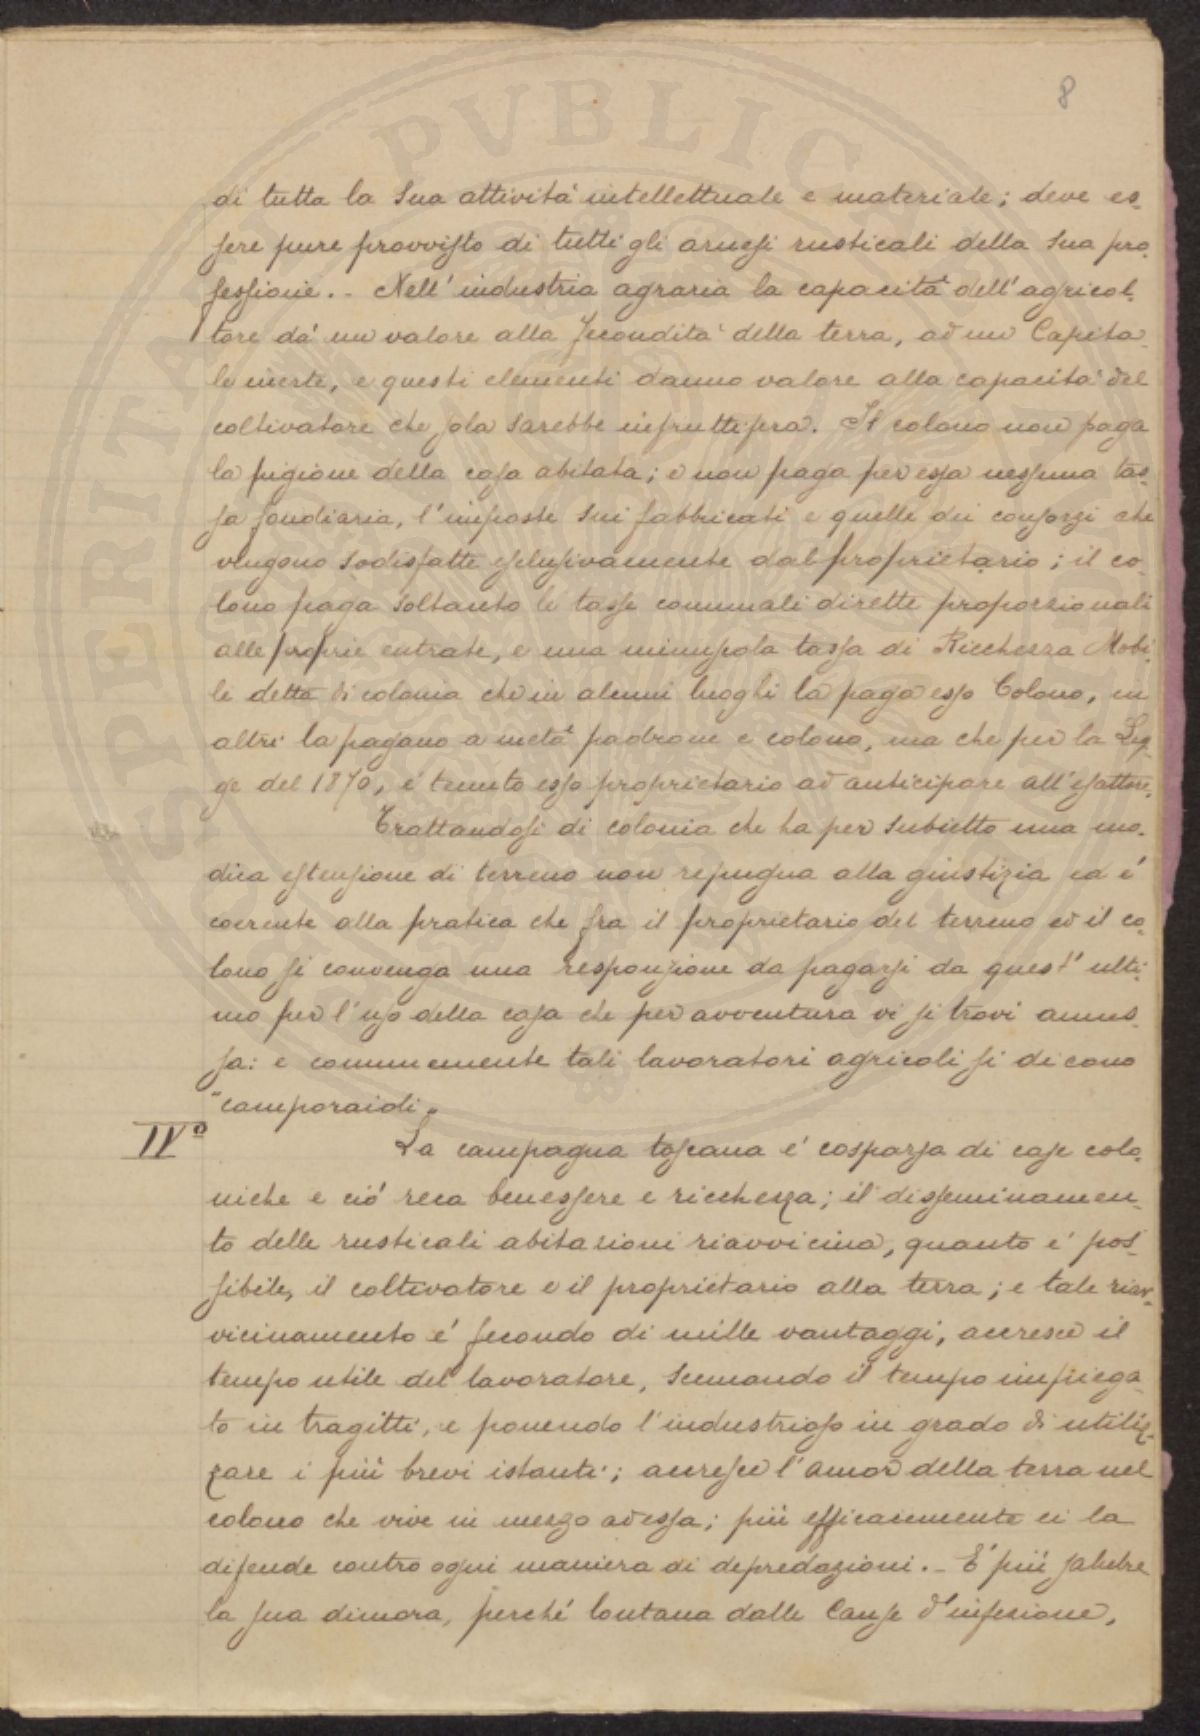 8
di tutta la sua attività intellettuale e materiale; deve es-
sere pure provvisto di tutti gli arnesi rusticali della sua pro-
fessione.- Nell'industria agraria la capacità dell'agricol-
tore dà un valore alla fecondità della terra, ad un Capita-
le inerte, e questi elementi danno valore alla capacità del
coltivatore che sola sarebbe infruttifera. Il colono non paga
la pigione della casa abitata; e non paga per essa nessuna tas-
sa fondiaria, l'imposte sui fabbricati e quelle dei consorzi che
vengono sodisfatte esclusivamente dal proprietario; il co-
lono paga soltanto le tasse comunali dirette proporzionali
alle proprie entrate, e una minuscola tassa di Ricchezza Mobi-
le detta di colonia che in alcuni luoghi la paga esso Colono, in
altri la pagano a metà padrone e colono, ma che per la Leg-
ge del 1870, è tenuto esso proprietario ad anticipare all'esattore.
Trattandosi di colonia che ha per subietto una mo-
dica estensione di terreno non repugna alla giustizia ed è
coerente alla pratica che fra il proprietario del terreno ed il co-
lono si convenga una responsione da pagarsi da quest'ulti-
mo per l'uso della casa che per avventura vi si trovi annes-
sa: e comunemente tali lavoratori agricoli si dicono
"camporaioli".
IVº
La campagna toscana è cosparsa di case colo-
niche e ciò reca benessere e ricchezza; il disseminamen-
to delle rusticali abitazioni riavvicina, quanto è pos-
sibile, il coltivatore e il proprietario alla terra; e tale riav-
vicinamento è fecondo di mille vantaggi, accresce il
tempo utile del lavoratore, scemando il tempo impiega-
to in tragitti, e ponendo l'industrioso in grado di utiliz-
zare i più brevi istanti; accresce l'amor della terra nel
colono che vive in mezzo ad essa; più efficacemente ei la
difende contro ogni maniera di depredazioni.- È più salubre
la sua dimora, perché lontana dalle Cause d'infezione,
SPERITAT PVBLICAE AVGENDAE